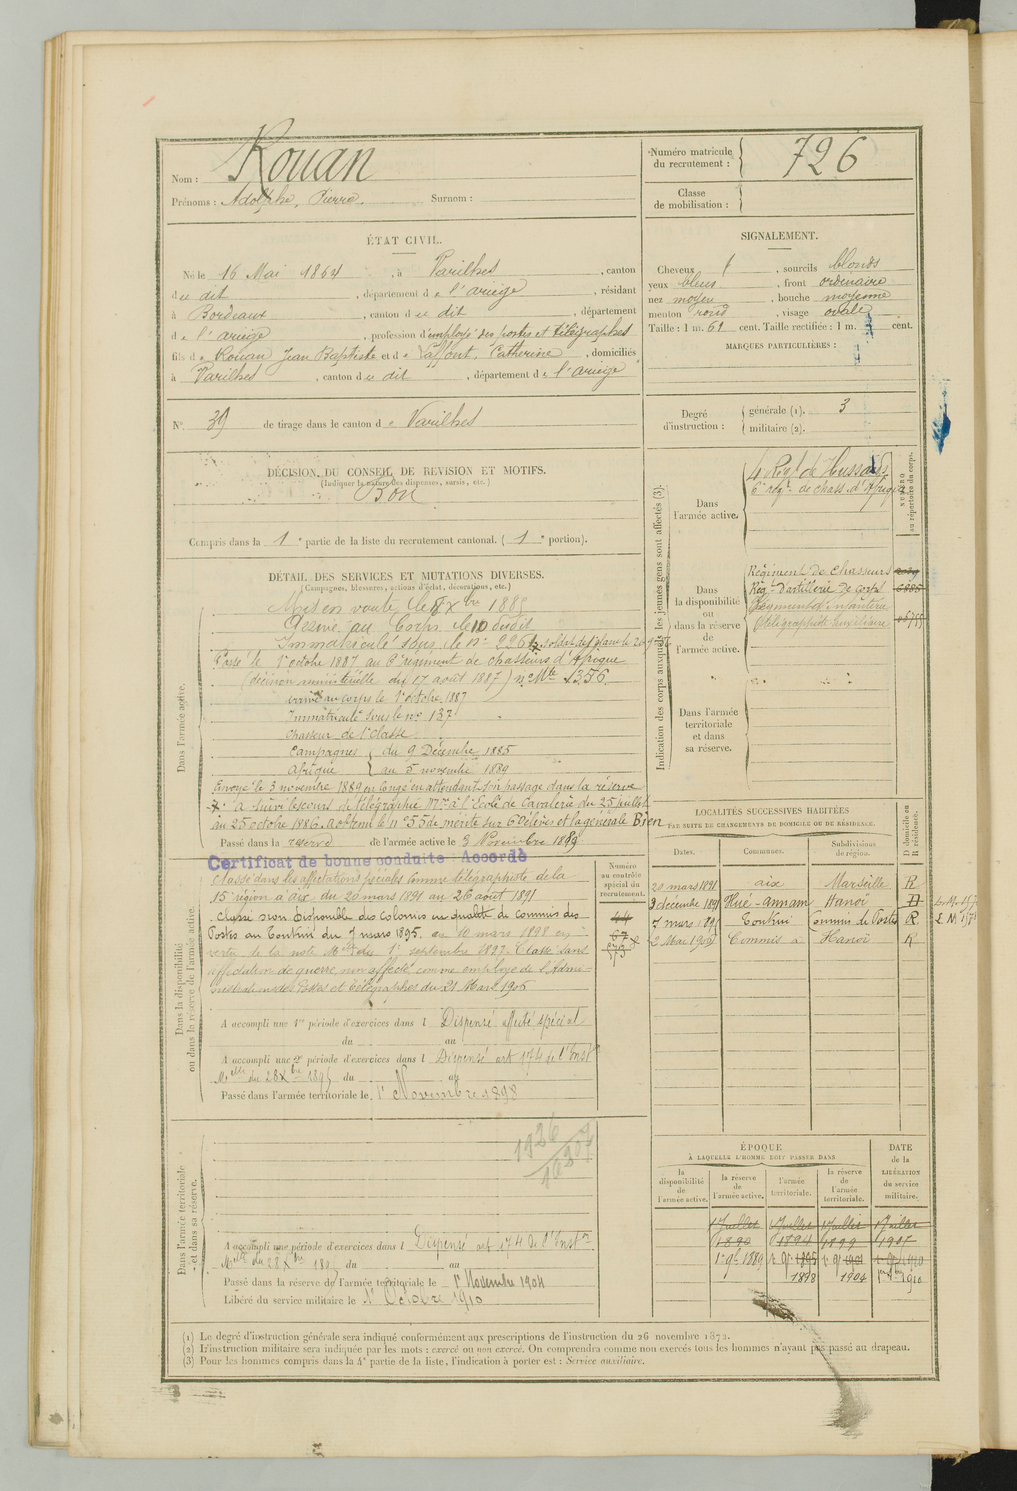 Nom : Rouan
Prénoms : Adolphe, Pierre. Surnom :
Numéro matricule du recrutement : 726
Classe de mobilisation :
ÉTAT CIVIL.
Né le 16 Mai 1864, à Varilhes, canton
du dit, département de l'ariège, résidant
à Bordeaux, canton du dit, département
d e l'ariège, profession d'employé des postes et télégraphes
fils de Rouan Jean Baptiste et de Laffont, Catherine, domiciliés
à Varilhes, canton du dit, département de l'ariège
N° 39 de tirage dans le canton de Varilhes
SIGNALEMENT.
Cheveux, sourcils blonds
yeux bleus, front ordinaire
nez moyen, bouche moyenne
menton rond, visage ovale
Taille : 1 m. 61 cent. Taille rectifiée : 1 m. cent.
MARQUES PARTICULIÈRES :
Degré d'instruction : générale (1). 3
militaire (2).
DÉCISION DU CONSEIL DE REVISION ET MOTIFS.
(Indiquer la nature des dispenses, sursis, etc.)
Bon
Compris dans la 1e partie de la liste du recrutement cantonal. (1e portion).
DÉTAIL DES SERVICES ET MUTATIONS DIVERSES.
(Campagnes, blessures, actions d'éclat, décorations, etc.)
Dans l'armée active.
Mis en route le 8 Xbre 1885
Arrivé au Corps le 10 dudit
Immatriculé sous le n° soldat de 1e classe le
Passé le 1er octobre 1887 au 6e régiment de chasseurs d'Afrique
(décision ministérielle du 17 août 1887) n° Mle 1356
arrivé au corps le 1er octobre 1887
Immatriculé sous le n° 137
chasseur de 1e classe
Campagnes du 9 Décembre 1885
Afrique au 5 novembre 1889
Envoyé le 3 novembre 1889 en congé en attendant son passage dans la réserve
A suivi les cours de télégraphie Mre à l'École de Cavalerie du 25 juillet
au 25 octobre 1886. A obtenu le n° 55 de mérite sur 60 élèves et la générale Bien
Passé dans la réserve de l'armée active le 3 Novembre 1889
Certificat de bonne conduite Accordé
Dans la disponibilité ou dans la réserve de l'armée active.
Classé dans les affectations spéciales comme télégraphiste de la
15e région à aix, du 20 mars 1891 au 26 août 1891
Classé non disponible des colonies en qualité de commis des
Postes au Tonkin du 7 mars 1895. au 10 mars 1898 en
vertu de la note Mlle du 1er septembre 1897. Classé sans
affectation de guerre, non affecté comme employé de l'Admi-
nistration des Postes et télégraphes du 21 Mars 1906
A accompli une 1re période d'exercices dans l Dispensé affecté spécial
du au
A accompli une 2e période d'exercices dans l Dispensé art 174 de l'Inston
Mlle du 28 Xbre 1895 du au
Passé dans l'armée territoriale le 1er Novembre 1898
Numéro au contrôle spécial du recrutement.
44
67
573
Dans l'armée territoriale et dans sa réserve.
1926
A accompli une période d'exercices dans l Dispensé art 174 de l'Inston
Mlle du 28 Xbre 1895 du au
Passé dans la réserve de l'armée territoriale le 1er Novembre 1904
Libéré du service militaire le 1er Octobre 1910
Indication des corps auxquels les jeunes gens sont affectés (3).
NUMÉRO au répertoire du corps.
Dans l'armée active.
4e Régt de Hussards
6e régt de chass. d'Afrique
Dans la disponibilité ou dans la réserve de l'armée active.
Régiment de Chasseurs
Régt d'artillerie de corps
Régiment d'infanterie
Télégraphiste auxiliaire
Dans l'armée territoriale et dans sa réserve.
LOCALITÉS SUCCESSIVES HABITÉES
PAR SUITE DE CHANGEMENTS DE DOMICILE OU DE RÉSIDENCE.
Dates. Communes. Subdivisions de région. D domicile ou R résidence.
20 mars 1891 aix Marseille R
3 decembre 1891 Hué-Annam Hanoi
7 mars 1895 Tonkin Commis des Postes R
2 Mai 1902 Commis à Hanoï R
ÉPOQUE
À LAQUELLE L'HOMME DOIT PASSER DANS
DATE de la LIBÉRATION du service militaire.
la disponibilité de l'armée active. la réserve de l'armée active. l'armée territoriale. la réserve de l'armée territoriale.
1 Juillet 1890 1 Juillet 1894 1 Juillet 1899 1 Juillet
1er 9bre 1889 1er 9bre 1895 1er 9bre 1901
1898 1904 1910
(1) Le degré d'instruction générale sera indiqué conformément aux prescriptions de l'instruction du 26 novembre 1872.
(2) L'instruction militaire sera indiquée par les mots : exercé ou non exercé. On comprendra comme non exercés tous les hommes n'ayant pas passé au drapeau.
(3) Pour les hommes compris dans la 4e partie de la liste, l'indication à porter est : Service auxiliaire.